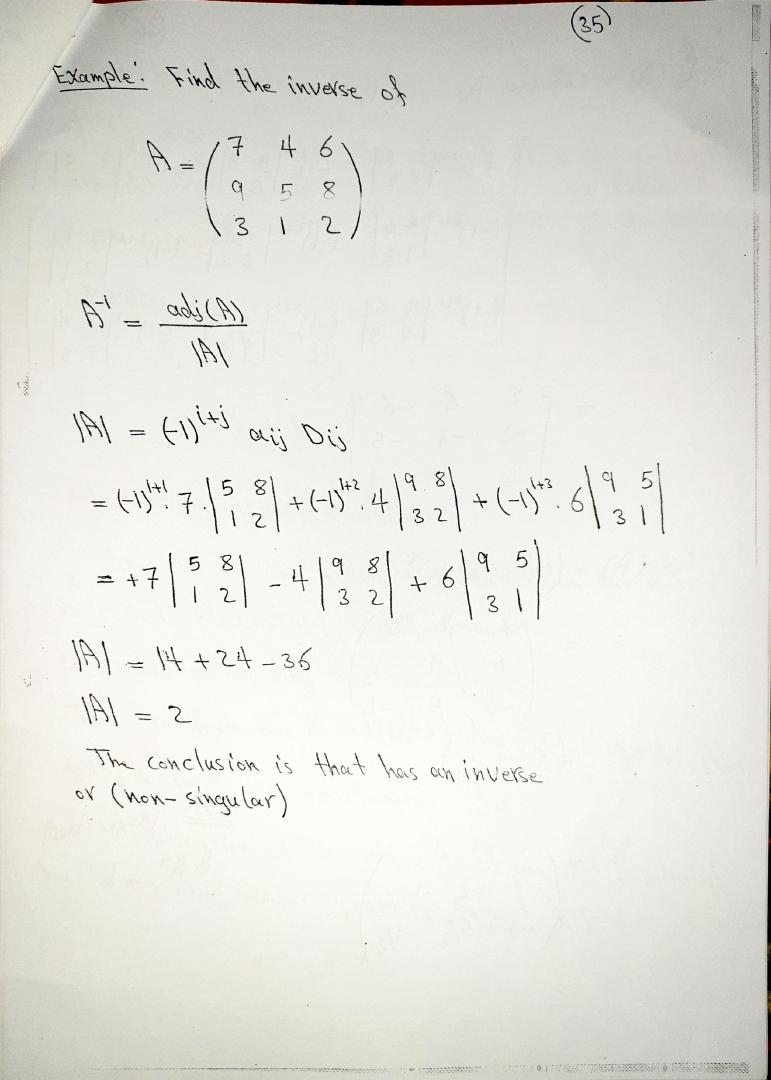 (35)
Example: Find the inverse of
A = (7 4 6
9 5 8
3 1 2)
A⁻¹ = adj(A) / |A|
|A| = (-1)^{i+j} aij Dij
= (-1)^{1+1}. 7. |5 8; 1 2| + (-1)^{1+2}. 4 |9 8; 3 2| + (-1)^{1+3}. 6 |9 5; 3 1|
= +7 |5 8; 1 2| - 4 |9 8; 3 2| + 6 |9 5; 3 1|
|A| = 14 + 24 - 36
|A| = 2
The conclusion is that has an inverse
or (non-singular)